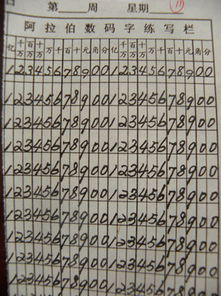 第 周 星期
阿拉伯数码字练写栏
亿 千万 百万 十万 万 千 百 十 元 角 分 亿 千万 百万 十万 万 千 百 十 元 角 分
1234567890012345678900
1234567890012345678900
1234567890012345678900
1234567890012345678900
1234567890012345678900
1234567890012345678900
1234567890012345678900
1234567890012345678900
1234567890012345678900
1234567890012345678900